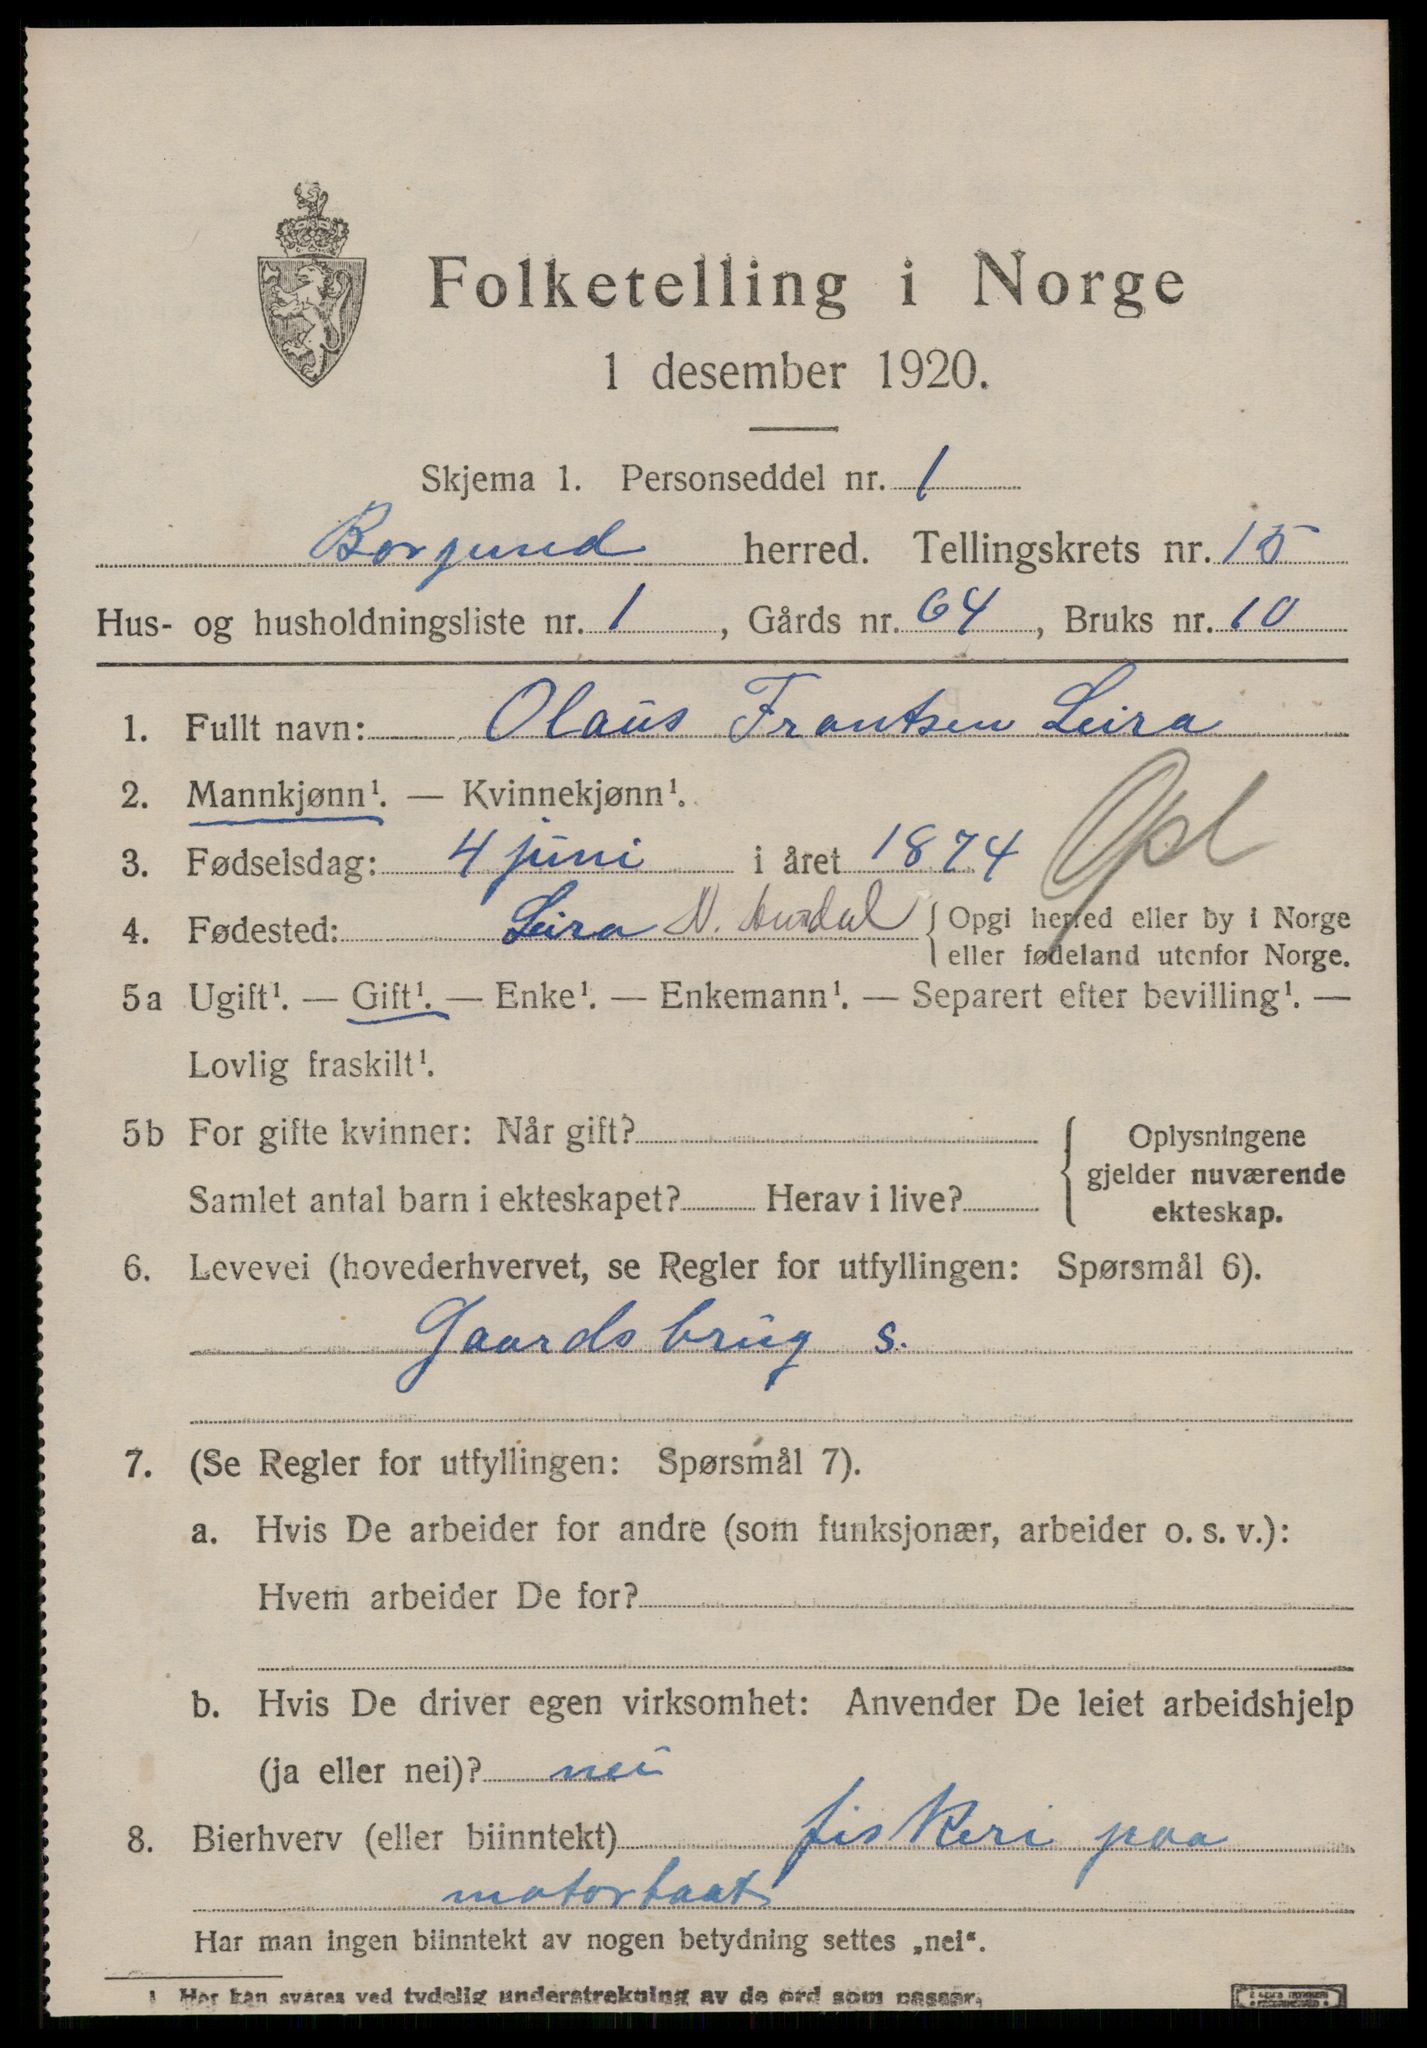 Folketelling i Norge
1 desember 1920.
Skjema 1. Personseddel nr. 1
Borgund herred. Tellingskrets nr. 15
Hus- og husholdningsliste nr. 1, Gårds nr. 64, Bruks nr. 10
1. Fullt navn: Olaus Frantsen Leira
2. Mannkjønn¹. — Kvinnekjønn¹.
3. Fødselsdag: 4 juni i året 1874
4. Fødested: Leira N. { Opgi herred eller by i Norge
eller fødeland utenfor Norge.
5a Ugift¹. — Gift¹. — Enke¹. — Enkemann¹. — Separert efter bevilling¹. —
Lovlig fraskilt¹.
5b For gifte kvinner: Når gift?
Samlet antal barn i ekteskapet? Herav i live?
{ Oplysningene
gjelder nuværende
ekteskap.
6. Levevei (hovederhvervet, se Regler for utfyllingen: Spørsmål 6).
Gaardsbrug s.
7. (Se Regler for utfyllingen: Spørsmål 7).
a. Hvis De arbeider for andre (som funksjonær, arbeider o. s. v.):
Hvem arbeider De for?
b. Hvis De driver egen virksomhet: Anvender De leiet arbeidshjelp
(ja eller nei)? nei
8. Bierhverv (eller biinntekt) fiskeri paa
motorbaat
Har man ingen biinntekt av nogen betydning settes „nei“.
1 Her kan svares ved tydelig understrekning av de ord som passer.